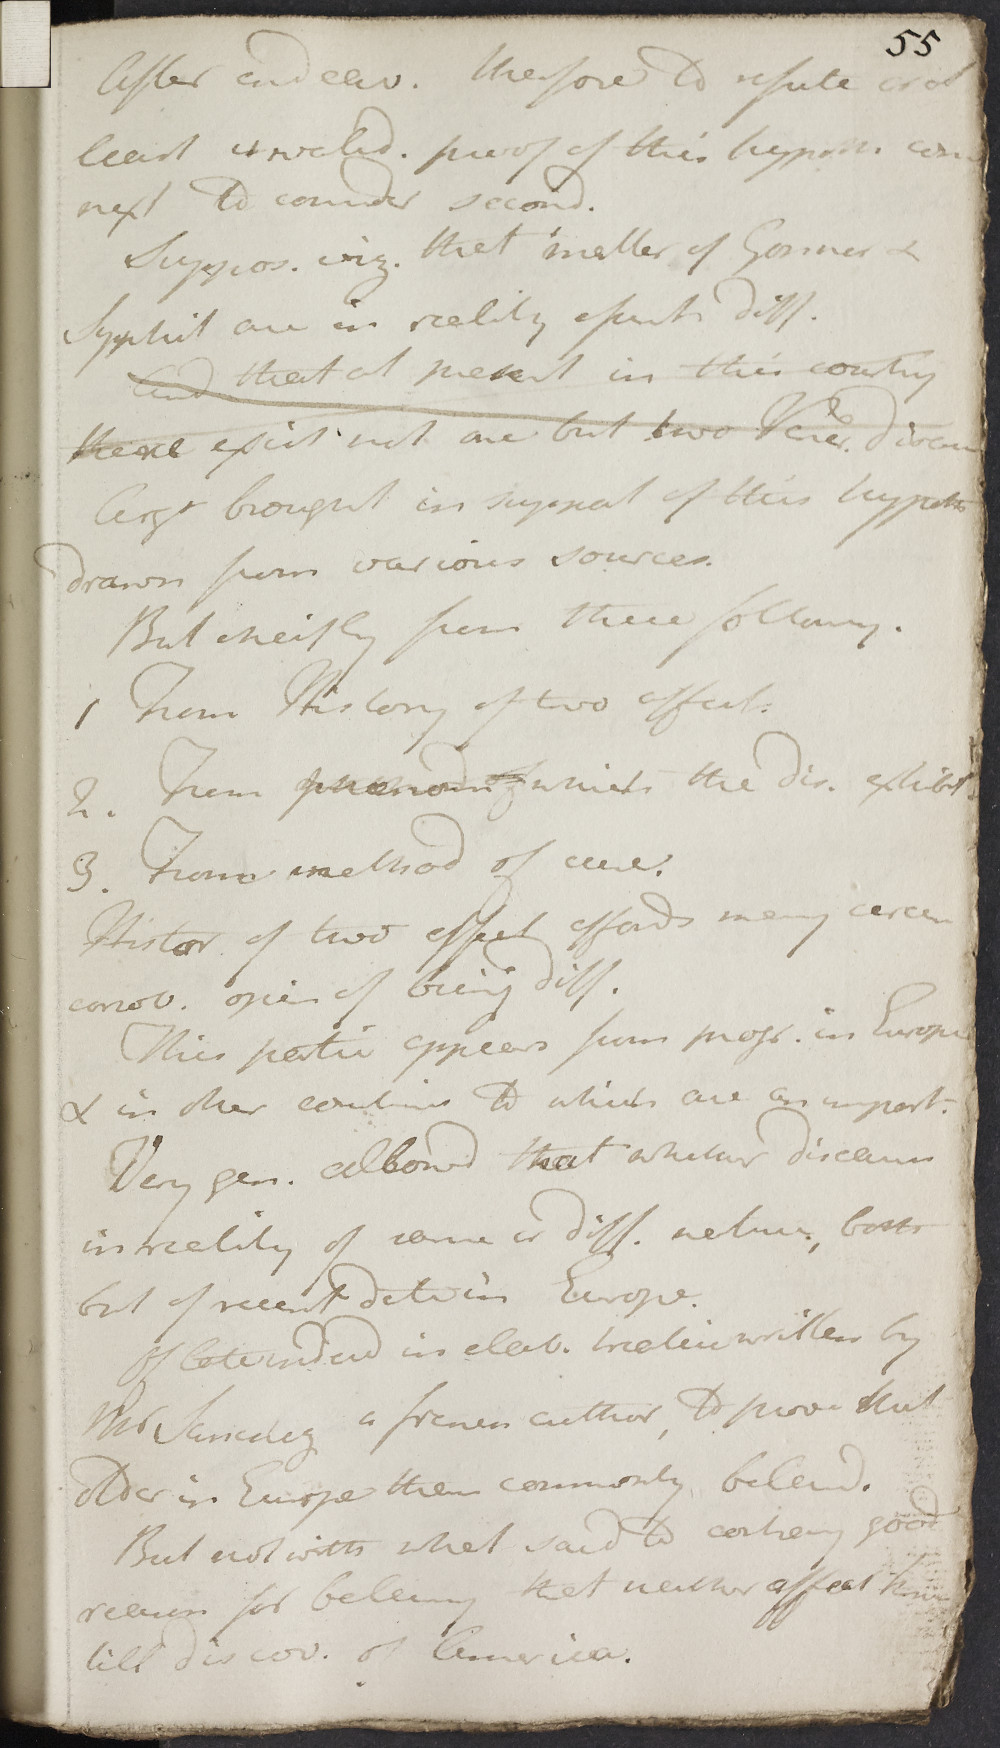 55
After endeav. therefore to refute or at
least invalid. proof of this hypoth. com
next to consider second.
Suppos. viz. that matter of Gonner &
Syphil are in reality essent diff.
And that at present in this country
there exist not one but two Vener. diseases
Argt brought in support of this hypoth
drawn from various sources.
But cheifly from these following.
1 From History of two affect.
2. From phenom of which the dis. exhibit
3. From method of cure.
Histor of two affect affords many circum
corrob. opin of being diff.
This partic appears from progr. in Europe
& in other countries to which are an import.
Very gen. allowed that whether diseases
in reality of same or diff. nature, both
but of recent date in Europe.
Of late indeed in elab. treatise written by
Mr Sanchez a french author, to prove that
older in Europe than commonly beleivd.
But notwith what said to contrary good
reason for beleiving that neither affect known
till discov. of America.